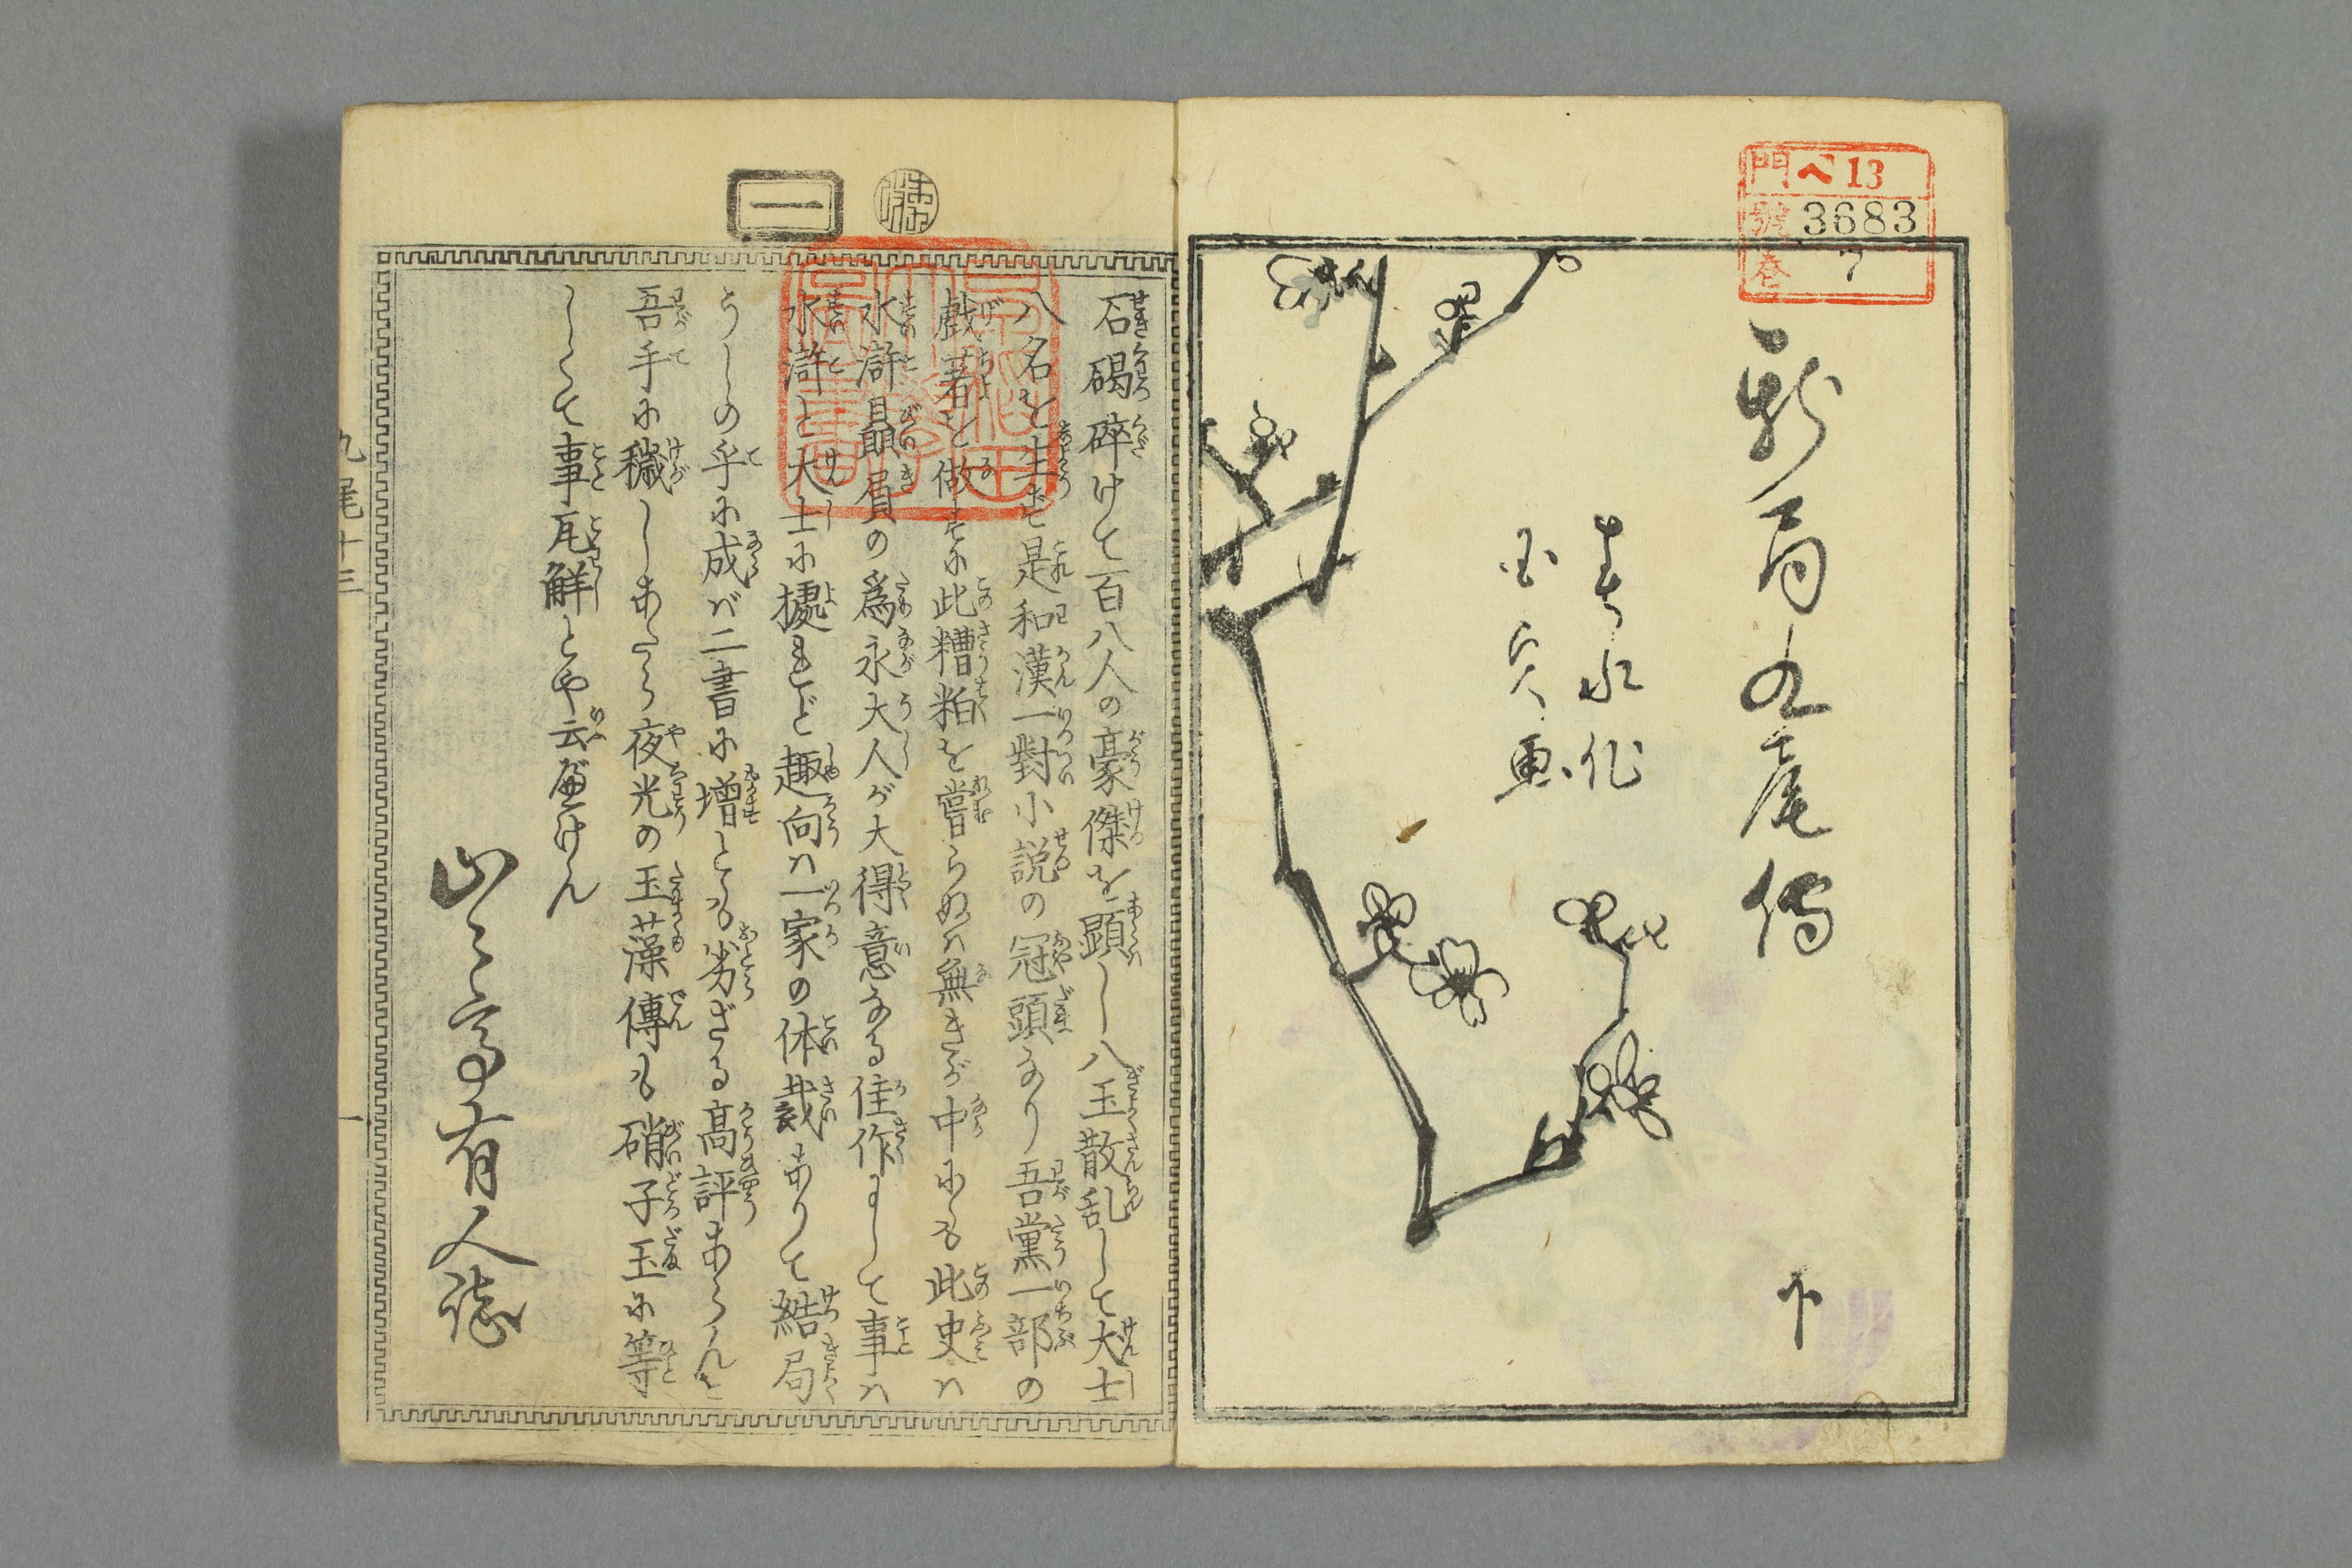 門 ヘ13
號 3683
巻 7
新局九尾傳
春水作
国貞画
下
一
石碣碎けて百八人の豪傑を顕し八玉散乱して犬士
八名を生ず是和漢一對小説の冠頭なり吾黨一部の
戯著を做すに此糟粕を嘗らぬハ無きが中にも此史ハ
水滸贔屓の為永大人が大得意なる佳作にして事ハ
水滸と犬士に據れど趣向ハ一家の体裁ありて結局
うしの手に成バ二書に増とも劣ざる高評あらんを
吾手に穢しあたら夜光の玉藻傳も硝子玉に等
しくて事瓦觧とや云べけん
山々亭有人誌
九尾十三
一